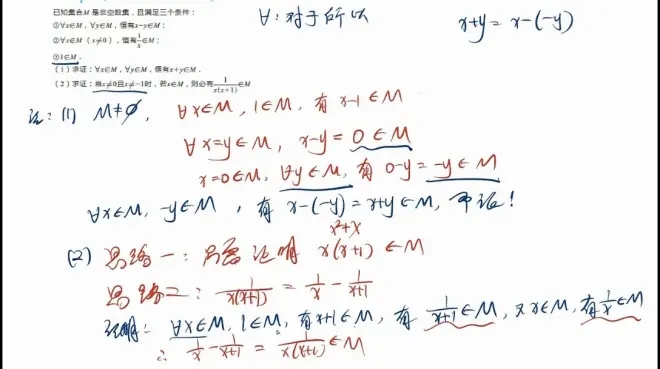 已知集合M 是非空数集，且满足三个条件：
①∀x∈M，∀y∈M，恒有x-y∈M；
②∀x∈M（x≠0），恒有1/x∈M；
③1∈M.
（1）求证：∀x∈M，∀y∈M，恒有x+y∈M.
（2）求证：当x≠0且x≠-1时，若x∈M，则必有1/x(x+1)∈M
∀：对于所以
x+y = x-(-y)
证：(1) M≠∅， ∀x∈M, 1∈M, 有 x-1∈M
∀x=y∈M, x-y= 0∈M
x=0∈M, ∀y∈M, 有 0-y= -y∈M
∀x∈M, -y∈M , 有 x-(-y)=x+y∈M, 即证!
x²+x
(2) 思路一：只需证明 x(x+1)∈M
思路二：1/x(x+1) = 1/x - 1/x+1
证明：∀x∈M, 1∈M, 有x+1∈M, 有 1/x+1∈M, 又x∈M, 有1/x∈M
∴ 1/x - 1/x+1 = 1/x(x+1)∈M